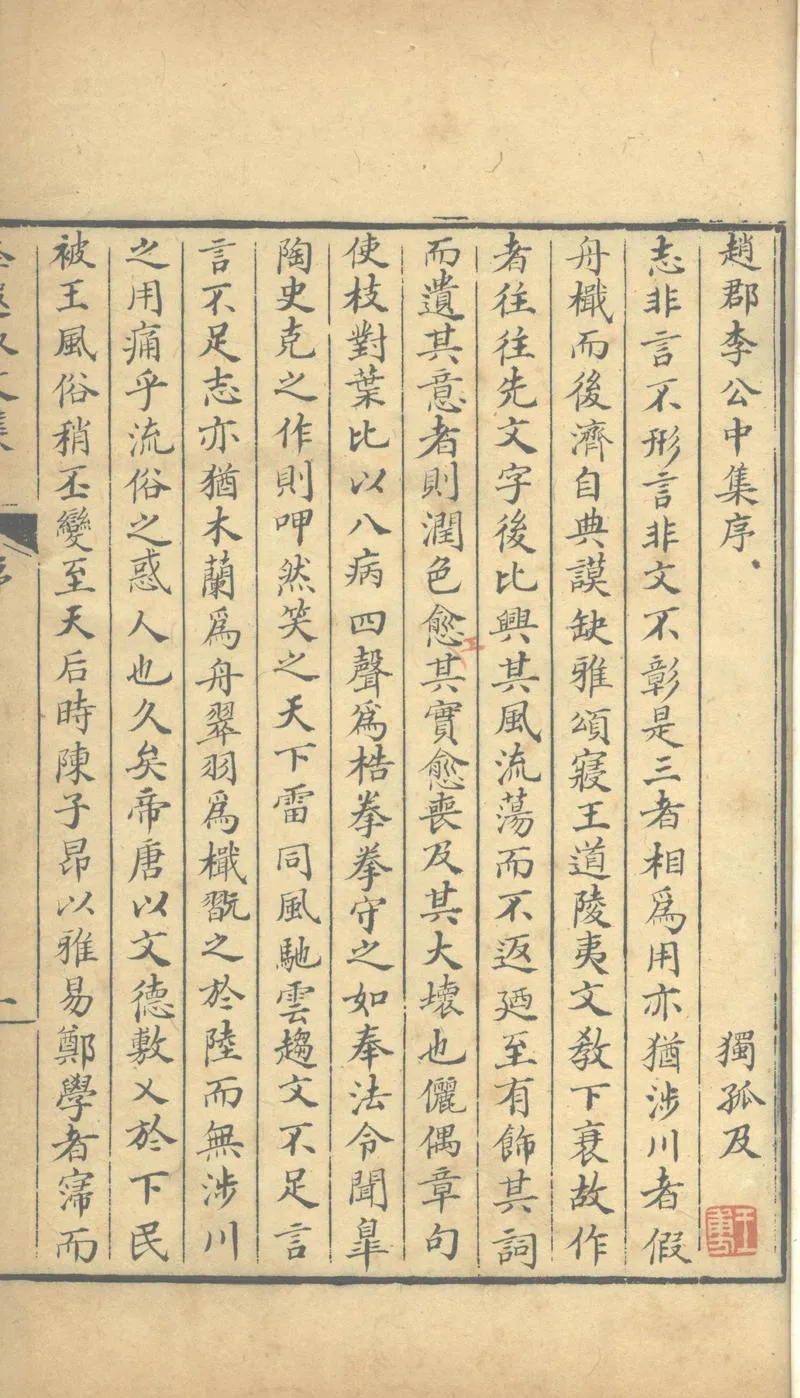 趙郡李公中集序 獨孤及
志非言不形言非文不彰是三者相爲用亦猶涉川者假
舟檝而後濟自典謨缺雅頌寢王道陵夷文教下衰故作
者往往先文字後比興其風流蕩而不返廼至有飾其詞
而遺其意者則潤色愈其實愈喪及其大壞也儷偶章句
使枝對葉比以八病四聲爲梏拳拳守之如奉法令聞臯
陶史克之作則呷然笑之天下雷同風馳雲趨文不足言
言不足志亦猶木蘭爲舟翠羽爲檝翫之於陸而無涉川
之用痛乎流俗之惑人也久矣帝唐以文德敷乂於下民
被王風俗稍丕變至天后時陳子昂以雅易鄭學者寖而
工
序
一